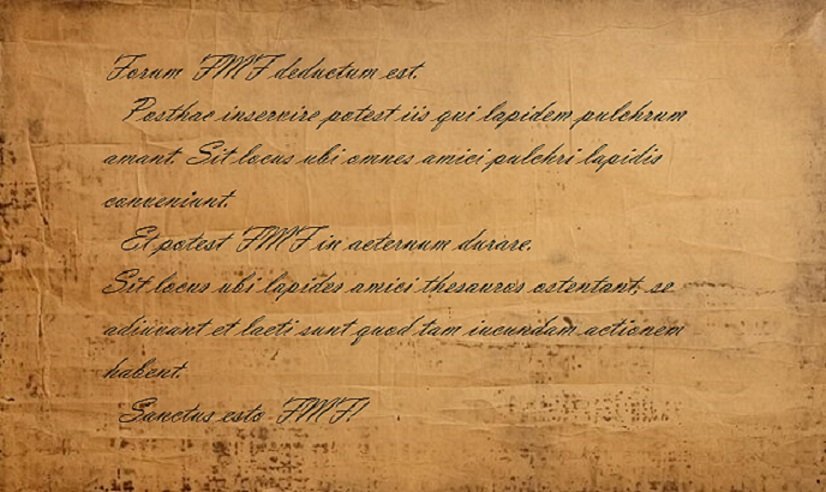 Forum FMF deductum est.
Posthac inservire potest iis qui lapidem pulchrum
amant. Sit locus ubi omnes amici pulchri lapidis
conveniunt.
Et potest FMF in aeternum durare.
Sit locus ubi lapides amici thesauros ostentant, se
adiuvant et laeti sunt quod tam iucundam actionem
habent.
Sanctus esto FMF!